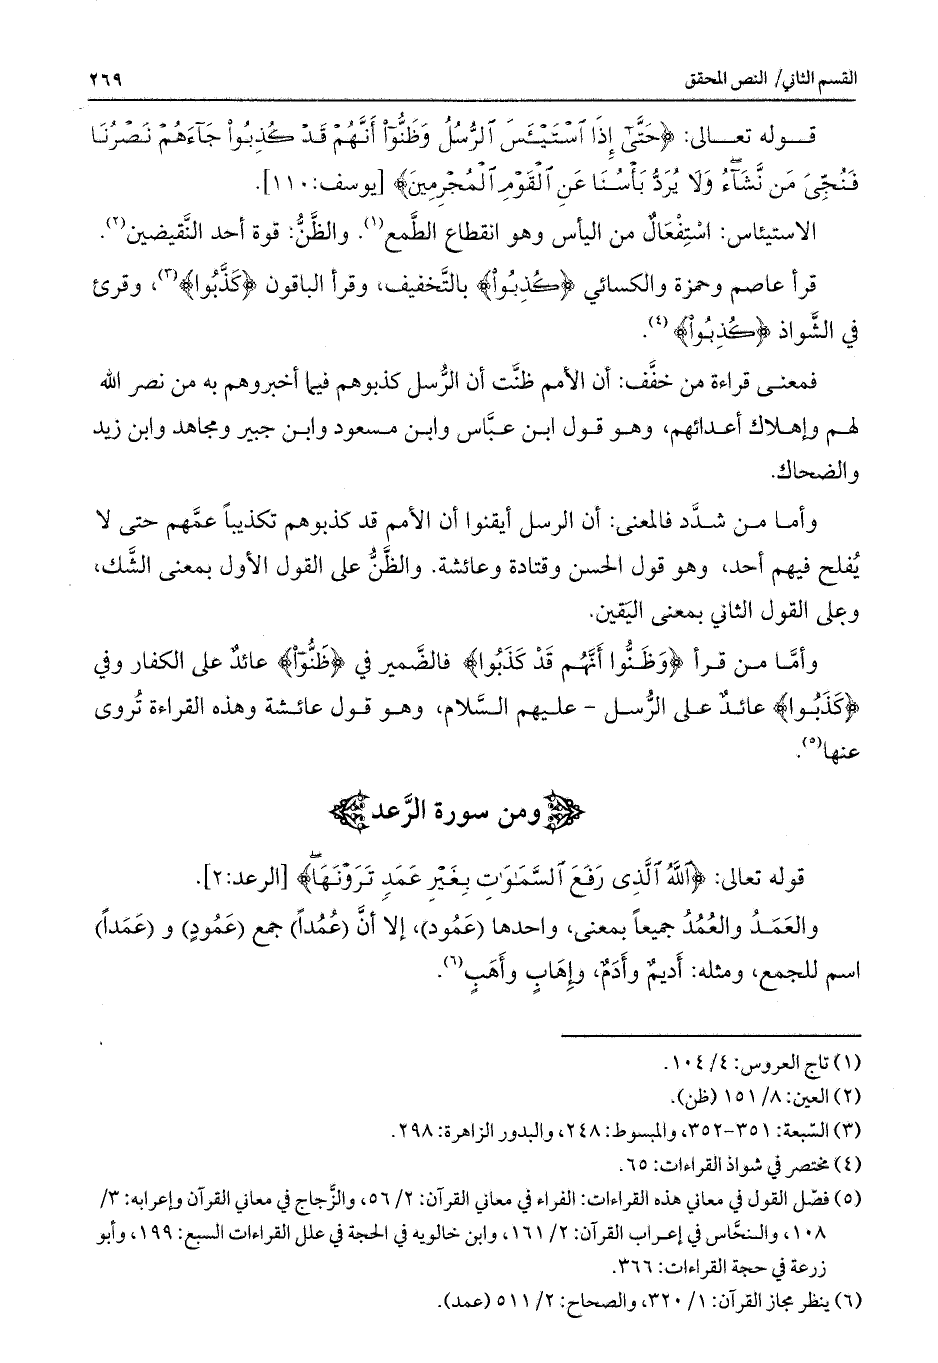 القسم الثاني/ النص المحقق ٢٦٩
قوله تعالى: ﴿حَتَّىٰٓ إِذَا ٱسْتَيْـَٔسَ ٱلرُّسُلُ وَظَنُّوٓا۟ أَنَّهُمْ قَدْ كُذِبُوا۟ جَآءَهُمْ نَصْرُنَا
فَنُجِّىَ مَن نَّشَآءُ ۖ وَلَا يُرَدُّ بَأْسُنَا عَنِ ٱلْقَوْمِ ٱلْمُجْرِمِينَ﴾ [يوسف: ١١٠].
الاستيئاس: اسْتِفْعَالٌ من اليأس وهو انقطاع الطَّمع(١). والظَّنُّ: قوة أحد النَّقيضين(٢).
قرأ عاصم وحمزة والكسائي ﴿كُذِبُوا۟﴾ بالتَّخفيف، وقرأ الباقون ﴿كَذَّبُوا﴾(٣)، وقرئ
في الشَّواذ ﴿كُذِبُوا۟﴾(٤).
فمعنى قراءة من خفَّف: أن الأمم ظنَّت أن الرُّسل كذبوهم فيما أخبروهم به من نصر الله
لهم وإهلاك أعدائهم، وهو قول ابن عبَّاس وابن مسعود وابن جبير ومجاهد وابن زيد
والضحاك.
وأما من شدَّد فالمعنى: أن الرسل أيقنوا أن الأمم قد كذبوهم تكذيباً عمَّهم حتى لا
يُفلح فيهم أحد، وهو قول الحسن وقتادة وعائشة. والظَّنُّ على القول الأول بمعنى الشَّك،
وعلى القول الثاني بمعنى اليَقين.
وأمَّا من قرأ ﴿وَظَنُّوا أَنَّهُم قَدْ كَذَبُوا﴾ فالضَّمير في ﴿ظَنُّوٓا۟﴾ عائدٌ على الكفار وفي
﴿كَذَبُوا﴾ عائدٌ على الرُّسل - عليهم السَّلام، وهو قول عائشة وهذه القراءة تُروى
عنها(٥).
ومن سورة الرَّعد
قوله تعالى: ﴿ٱللَّهُ ٱلَّذِى رَفَعَ ٱلسَّمَـٰوَٰتِ بِغَيْرِ عَمَدٍ تَرَوْنَهَا ۖ﴾ [الرعد: ٢].
والعَمَدُ والعُمُدُ جميعاً بمعنى، واحدها (عَمُود)، إلا أنَّ (عُمُداً) جمع (عَمُودٍ) و (عَمَداً)
اسم للجمع، ومثله: أَديمٌ وأَدَمٌ، وإِهَابٍ وأَهَبٍ(٦).
(١) تاج العروس: ٤/ ١٠٤.
(٢) العين: ٨/ ١٥١ (ظن).
(٣) السَّبعة: ٣٥١-٣٥٢، والمبسوط: ٢٤٨، والبدور الزاهرة: ٢٩٨.
(٤) مختصر في شواذ القراءات: ٦٥.
(٥) فصّل القول في معاني هذه القراءات: الفراء في معاني القرآن: ٢/ ٥٦، والزَّجاج في معاني القرآن وإعرابه: ٣/
١٠٨، والنحَّاس في إعراب القرآن: ٢/ ١٦١، وابن خالويه في الحجة في علل القراءات السبع: ١٩٩، وأبو
زرعة في حجة القراءات: ٣٦٦.
(٦) ينظر مجاز القرآن: ١/ ٣٢٠، والصحاح: ٢/ ٥١١ (عمد).